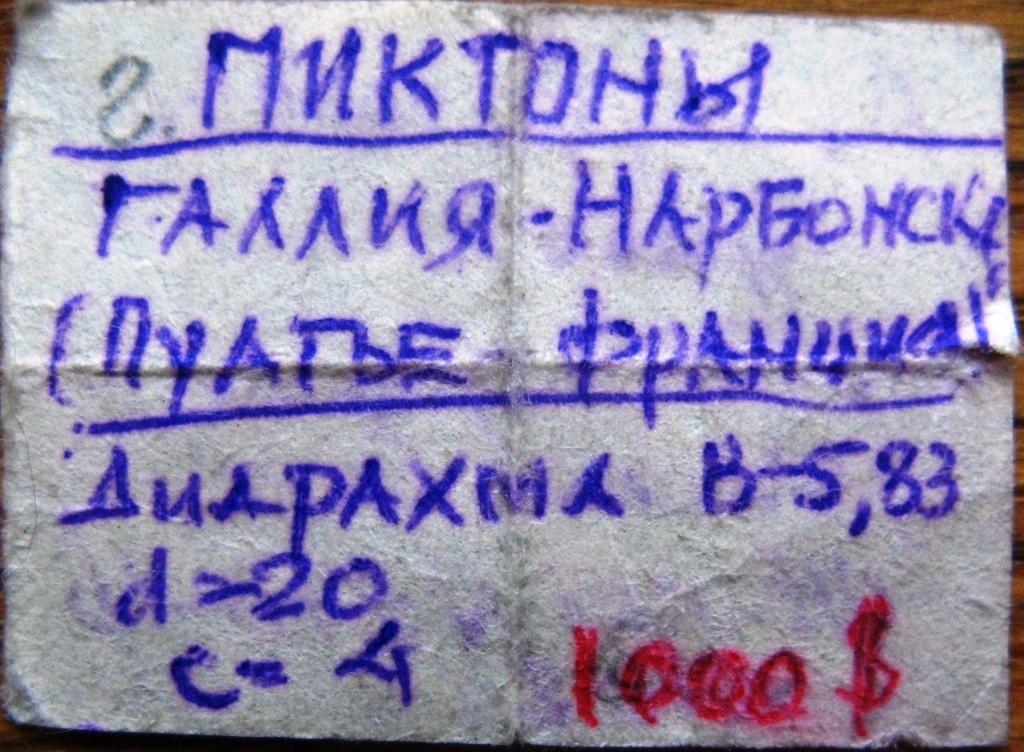 г. ПИКТОНЫ
ГАЛЛИЯ-НАРБОНСКА
(ПУАТЬЕ - ФРАНЦИЯ)
ДИДРАХМА В-5,83
d=20
с=4 1000 $